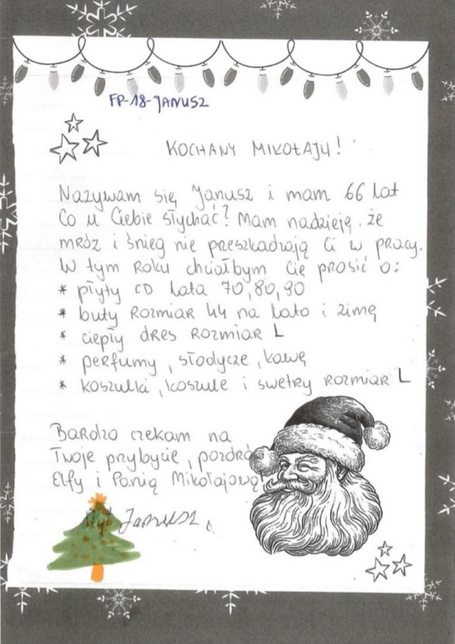 FP-18-JANUSZ
KOCHANY MIKOŁAJU!
Nazywam się Janusz i mam 66 lat
Co u Ciebie słychać? Mam nadzieję, że
mróz i śnieg nie przeszkadzają Ci w pracy.
W tym roku chciałbym Cię prosić o:
* płyty CD lata 70,80,90
* buty rozmiar 44 na lato i zimę
* ciepły dres rozmiar L
* perfumy, słodycze, kawę
* koszulki, koszule i swetry rozmiar L
Bardzo czekam na
Twoje przybycie, pozdrów
Elfy i Panią Mikołajową!
Janusz